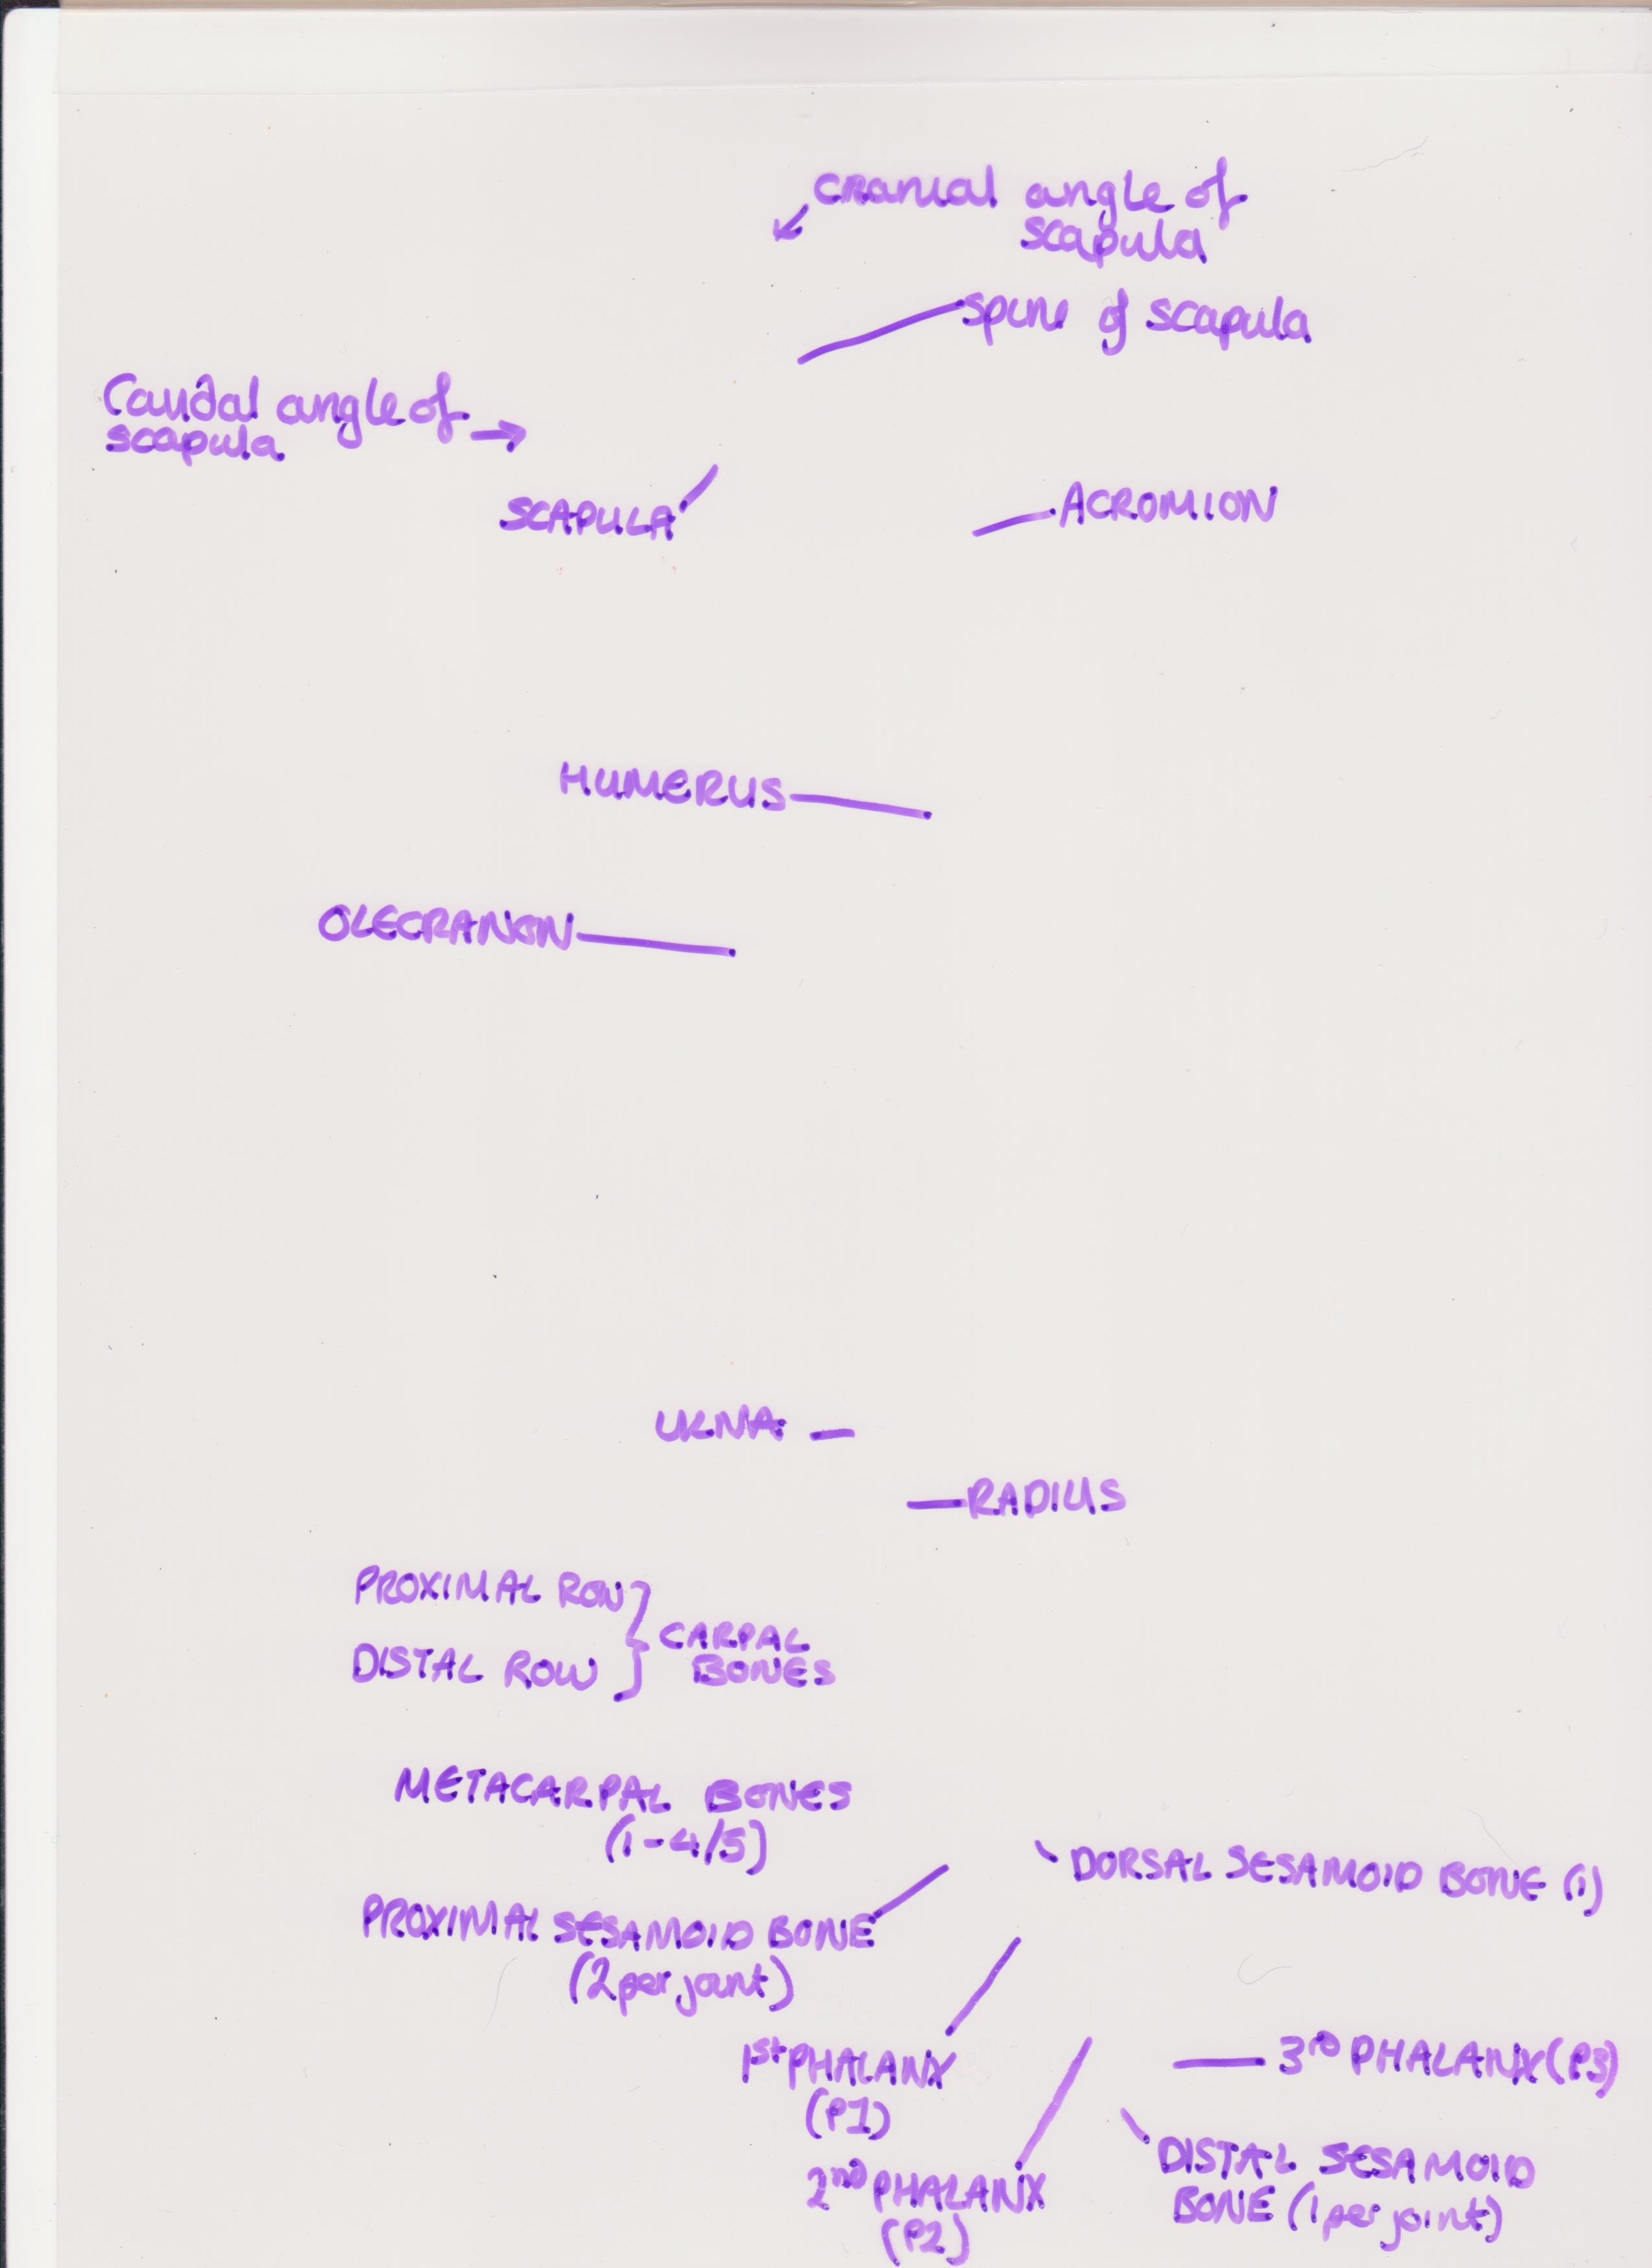 cranial angle of
scapula
spine of scapula
Caudal angle of
scapula
SCAPULA
ACROMION
HUMERUS
OLECRANON
ULNA
RADIUS
PROXIMAL ROW
DISTAL ROW
CARPAL
BONES
METACARPAL BONES
(1-4/5)
DORSAL SESAMOID BONE (1)
PROXIMAL SESAMOID BONE
(2 per joint)
1st PHALANX
(P1)
3RD PHALANX (P3)
2ND PHALANX
(P2)
DISTAL SESAMOID
BONE (1 per joint)